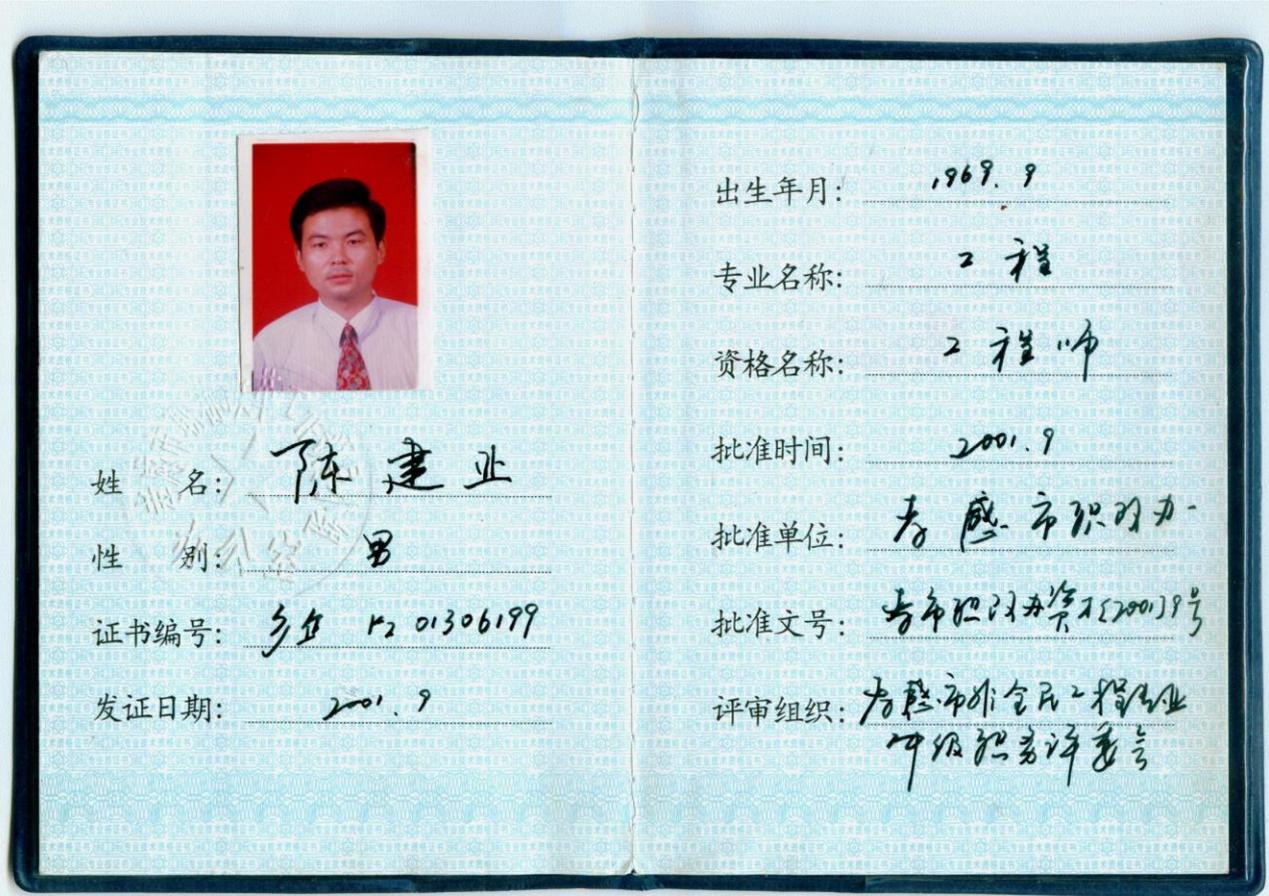 姓 名: 陈建业
性 别: 男
证书编号: 乡企 K2 01306199
发证日期: 2001.9
出生年月: 1969.9
专业名称: 工程
资格名称: 工程师
批准时间: 2001.9
批准单位: 孝感市职改办
批准文号: 孝市职改办资才[2001]9号
评审组织: 孝感市非全民工程专业
中级职务评委会